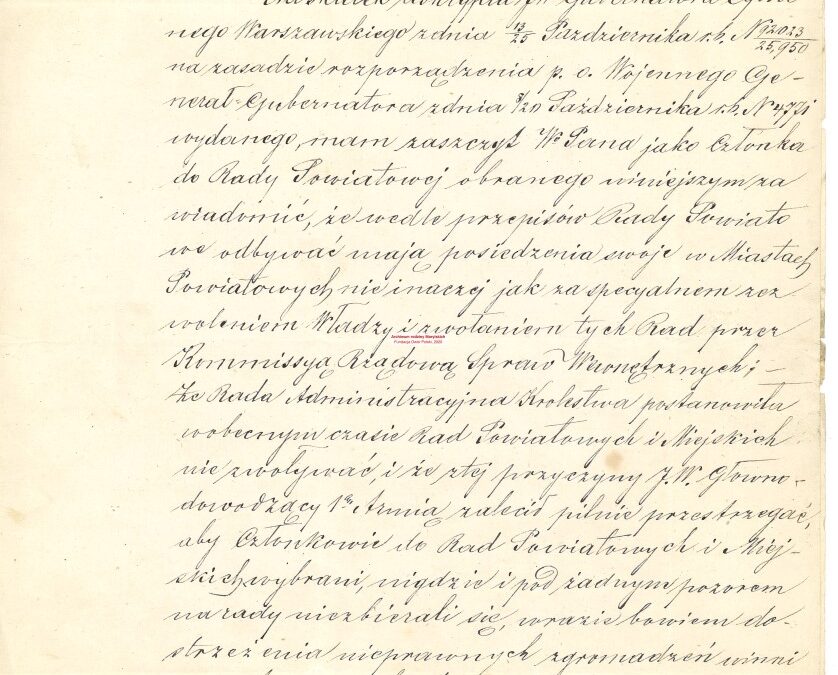 nego Warszawskiego z dnia 13/25 Października r.b. N 92023/25,950
na zasadzie rozporządzenia p. o. Wojennego Ge-
nerał-Gubernatora z dnia 8/20 Października r.b. N 4771
wydanego, mam zaszczyt Wo Pana jako Członka
do Rady Powiatowej obranego niniejszym za
wiadomić, że wedle przepisów Rady Powiato
we odbywać mają posiedzenia swoje w Miastach
Powiatowych nie inaczej jak za specyalnem zez
woleniem Władzy i zwołaniem tych Rad przez
Archiwum rodziny Maryńskich
Fundacja Osów Polski, 2020
Kommissyą Rządową Spraw Wewnętrznych; –
że Rada Administracyjna Królestwa postanowiła
w obecnym czasie Rad Powiatowych i Miejskich
nie zwoływać, i że z tej przyczyny J.W. Głowno-
dowodzący 1ą Armią zalecił pilnie przestrzegać,
aby Członkowie do Rad Powiatowych i Miej-
skich wybrani, nigdzie i pod żadnym pozorem
na rady niezbierali się, w razie bowiem do-
strzeżenia nieprawnych zgromadzeń winni